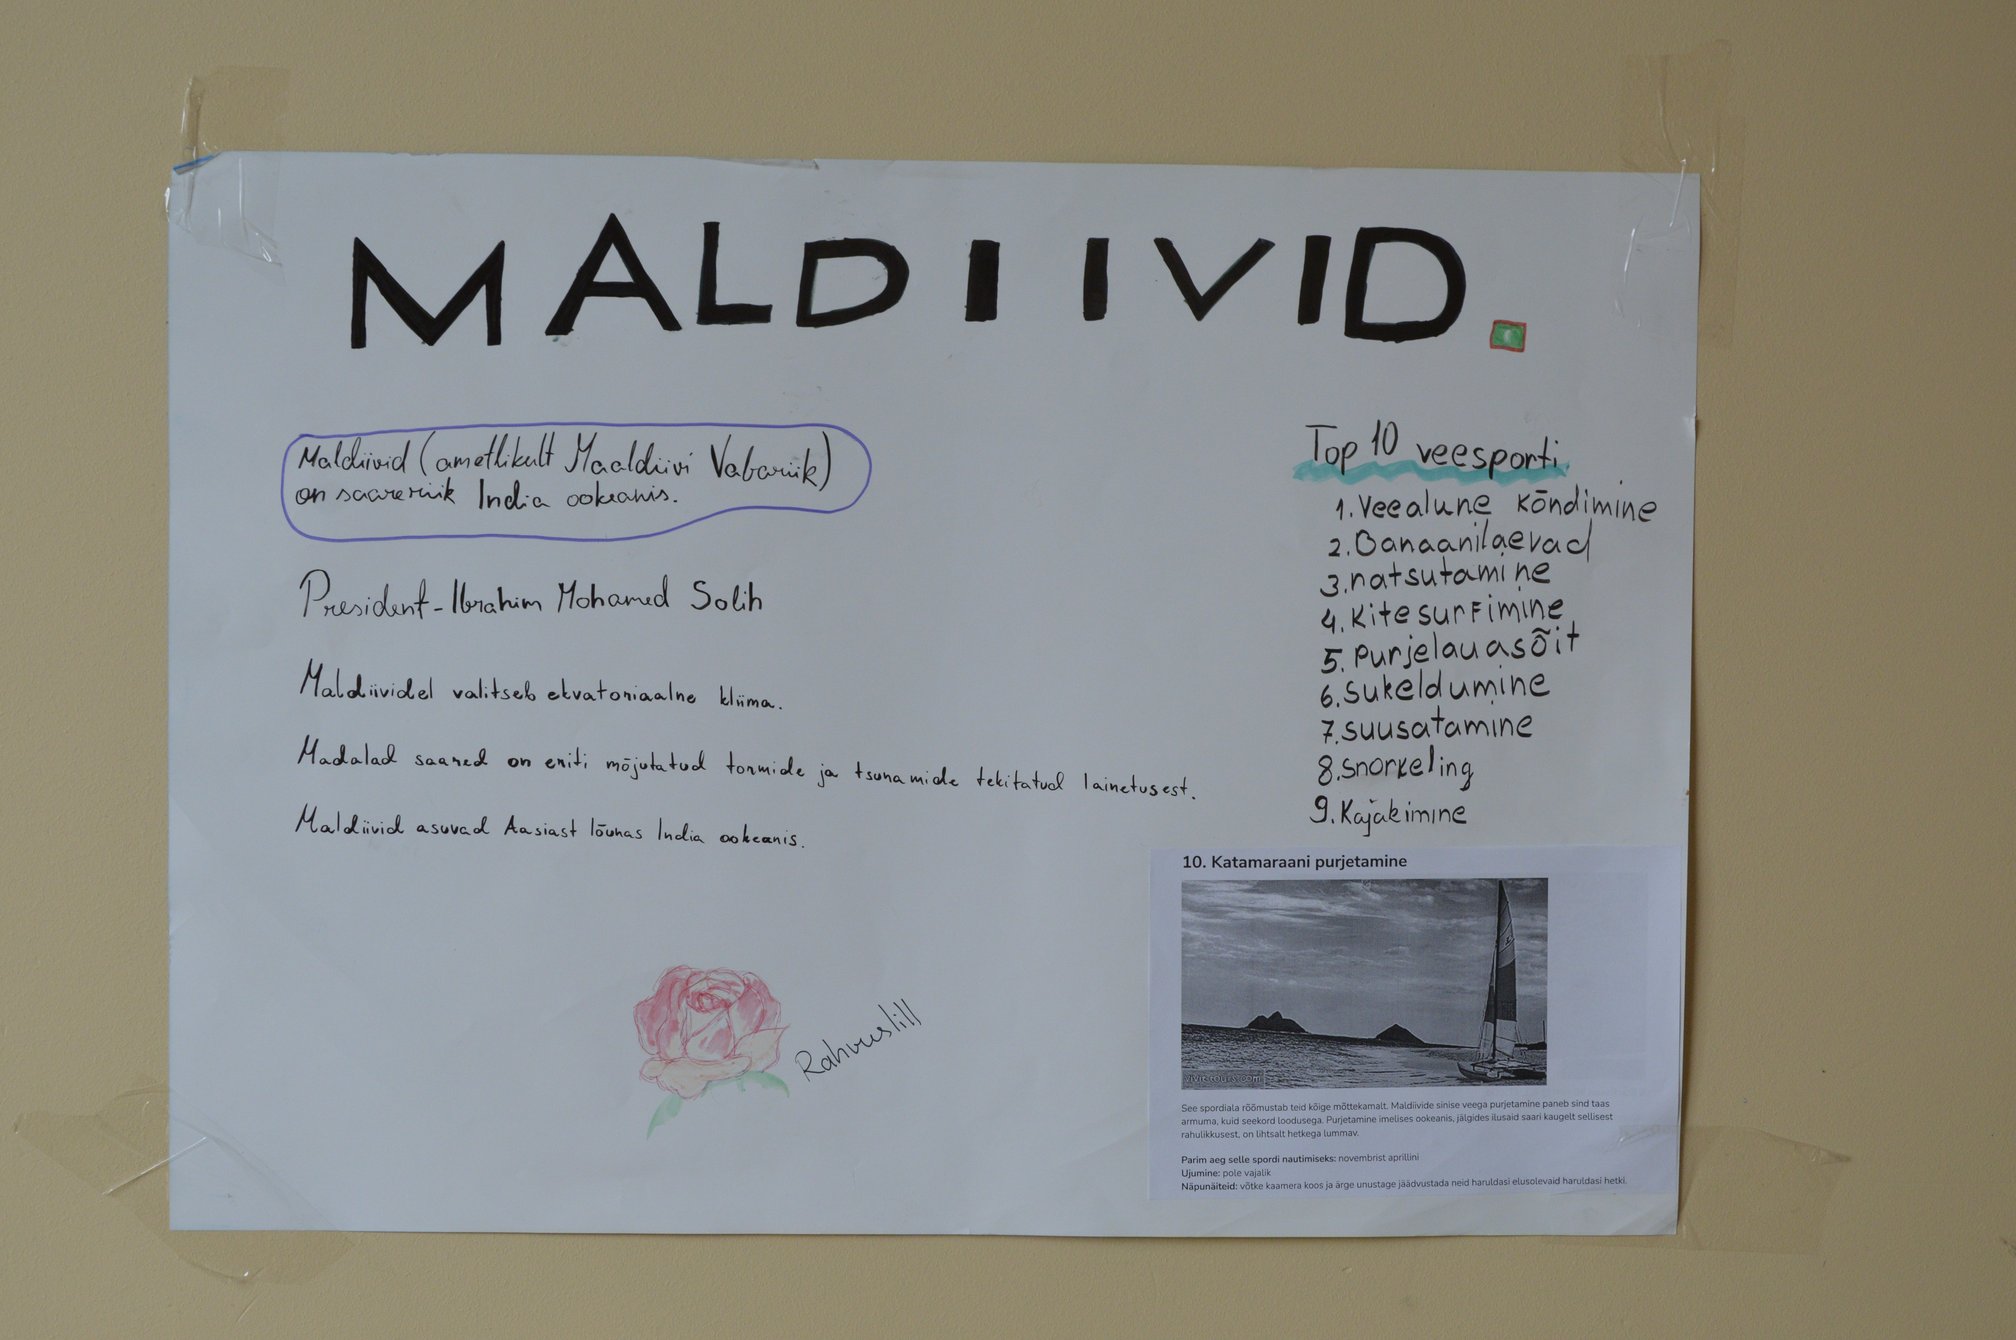 MALDIIVID.
Maldiivid (ametlikult Maaldiivi Vabariik)
on saareriik India ookeanis.
President - Ibrahim Mohamed Solih
Maldiividel valitseb ekvatoriaalne kliima.
Madalad saared on eriti mõjutatud tormide ja tsunamide tekitatud lainetusest.
Maldiivid asuvad Aasiast lõunas India ookeanis.
Rahvuslill
Top 10 veesporti
1. Veealune kõndimine
2. Banaanilaevad
3. ratsutamine
4. Kitesurfimine
5. Purjelauasõit
6. Sukeldumine
7. suusatamine
8. Snorkeling
9. Kajakimine
10. Katamaraani purjetamine
vivit-tours.com
See spordiala rõõmustab teid kõige mõttekamalt. Maldiivide sinise veega purjetamine paneb sind taas
armuma, kuid seekord loodusega. Purjetamine imelises ookeanis, jälgides ilusaid saari kaugelt sellisest
rahulikkusest, on lihtsalt hetkega lummav.
Parim aeg selle spordi nautimiseks: novembrist aprillini
Ujumine: pole vajalik
Näpunäiteid: võtke kaamera koos ja ärge unustage jäädvustada neid haruldasi elusolevaid haruldasi hetki.